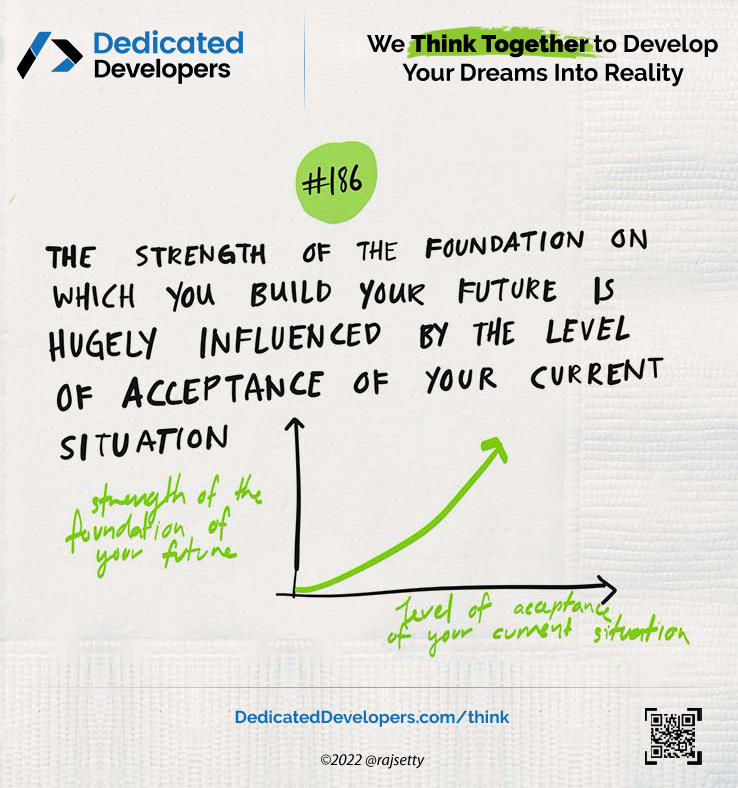 Dedicated
Developers
We Think Together to Develop
Your Dreams Into Reality
#186
THE STRENGTH OF THE FOUNDATION ON
WHICH YOU BUILD YOUR FUTURE IS
HUGELY INFLUENCED BY THE LEVEL
OF ACCEPTANCE OF YOUR CURRENT
SITUATION
strength of the
foundation of
your future
level of acceptance
of your current situation
DedicatedDevelopers.com/think
©2022 @rajsetty